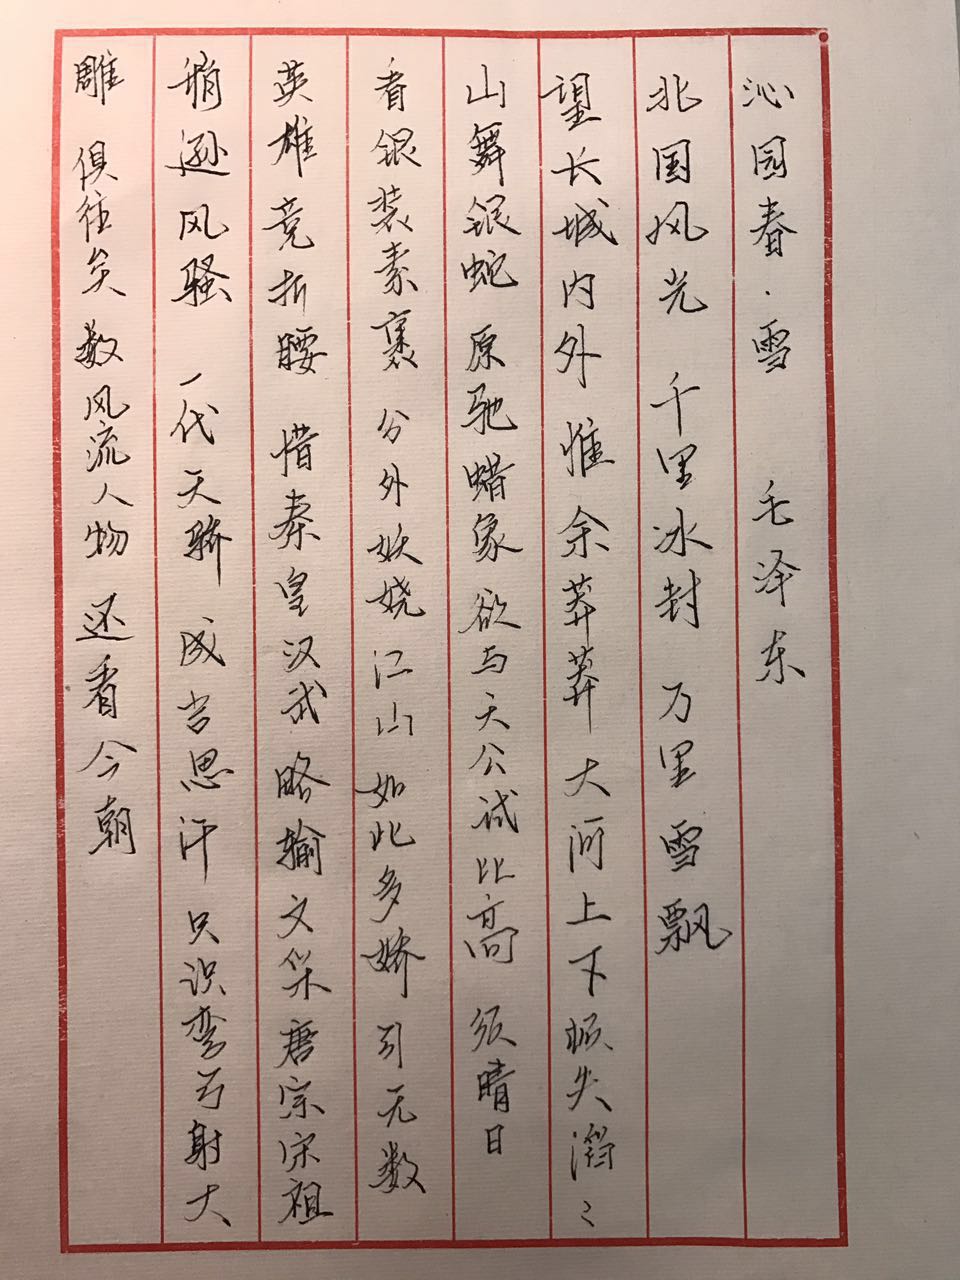 沁园春·雪 毛泽东
北国风光 千里冰封 万里雪飘
望长城内外 惟余莽莽 大河上下 顿失滔〻
山舞银蛇 原驰蜡象 欲与天公试比高 须晴日
看银装素裹 分外妖娆 江山如此多娇 引无数
英雄竞折腰 惜秦皇汉武 略输文采 唐宗宋祖
稍逊风骚 一代天骄 成吉思汗 只识弯弓射大
雕 俱往矣 数风流人物 还看今朝